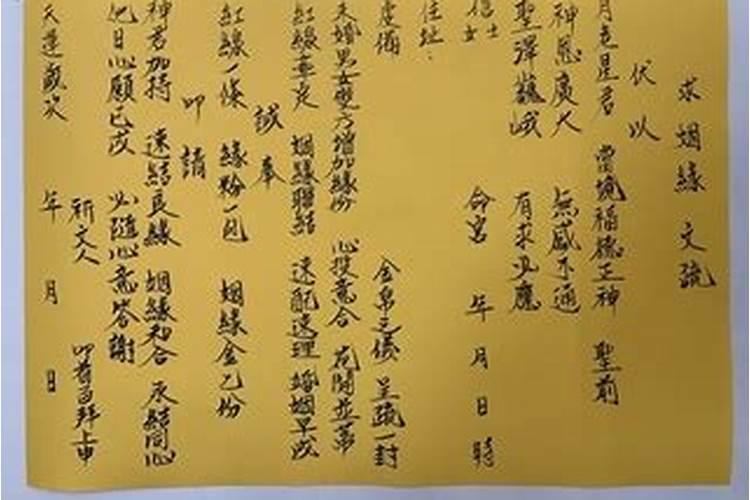 求姻緣文疏
伏以
月老星君 當境福德正神 聖前
神恩廣大 無感不通
聖澤巍峨 有求必應
信士
女 命宮 年 月 日 時
住址：
虔備 金帛之儀 呈疏一封
未婚男女雙方增加緣份 心投意合 花開並蒂
紅線牽定 姻緣聯結 速配送理 婚姻早成
誠奉
紅線一條 緣粉一包 姻緣金乙份
叩請
神君加持 速結良緣 姻緣和合 永結同心
他日心願已成 必隨心意答謝
祈文人 叩首百拜上申
天運歲次 年 月 日